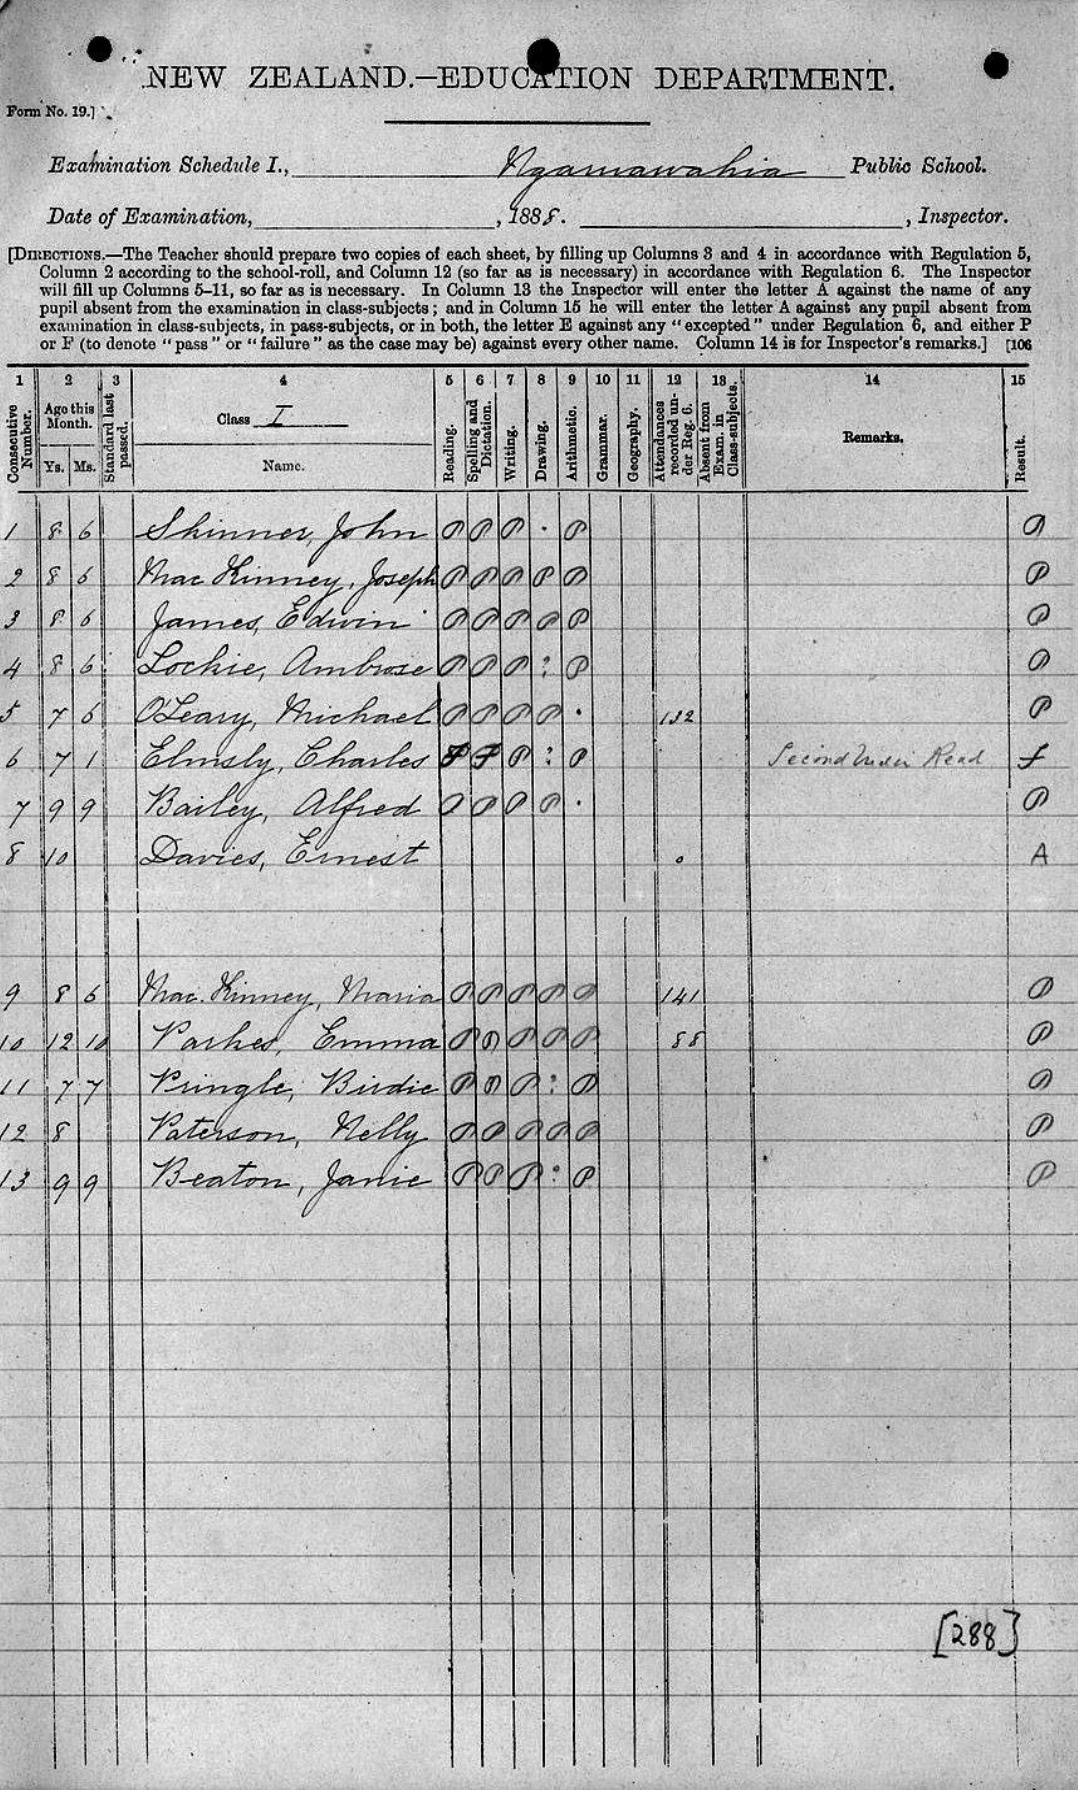 NEW ZEALAND.—EDUCATION DEPARTMENT.
Form No. 19.]
Examination Schedule I., Ngaruawahia Public School.
Date of Examination, , 1888. , Inspector.
[DIRECTIONS.—The Teacher should prepare two copies of each sheet, by filling up Columns 3 and 4 in accordance with Regulation 5,
Column 2 according to the school-roll, and Column 12 (so far as is necessary) in accordance with Regulation 6. The Inspector
will fill up Columns 5–11, so far as is necessary. In Column 13 the Inspector will enter the letter A against the name of any
pupil absent from the examination in class-subjects; and in Column 15 he will enter the letter A against any pupil absent from
examination in class-subjects, in pass-subjects, or in both, the letter E against any "excepted" under Regulation 6, and either P
or F (to denote "pass" or "failure" as the case may be) against every other name. Column 14 is for Inspector's remarks.] [106
1 2 3 4 5 6 7 8 9 10 11 12 13 14 15
Consecutive Number. Age this Month. Ys. Ms. Standard last passed. Class I Name. Reading. Spelling and Dictation. Writing. Drawing. Arithmetic. Grammar. Geography. Attendances recorded under Reg. 6. Absent from Exam. in Class-subjects. Remarks. Result.
1 8 6 Skinner, John P P P . P P
2 8 6 Mac Kinney, Joseph P P P P P P
3 8 6 James, Edwin P P P P P P
4 8 6 Lockie, Ambrose P P P : P P
5 7 6 O'Leary, Michael P P P P . 132 P
6 7 1 Elmsly, Charles F F P : P Second Read F
7 9 9 Bailey, Alfred P P P P . P
8 10 Davies, Ernest 0 A
9 8 6 Mac. Kinney, Maria P P P P P 141 P
10 12 10 Parker, Emma P P P P P 88 P
11 7 7 Pringle, Birdie P P P : P P
12 8 Paterson, Nelly P P P P P P
13 9 9 Beaton, Janie P P P : P P
[288]